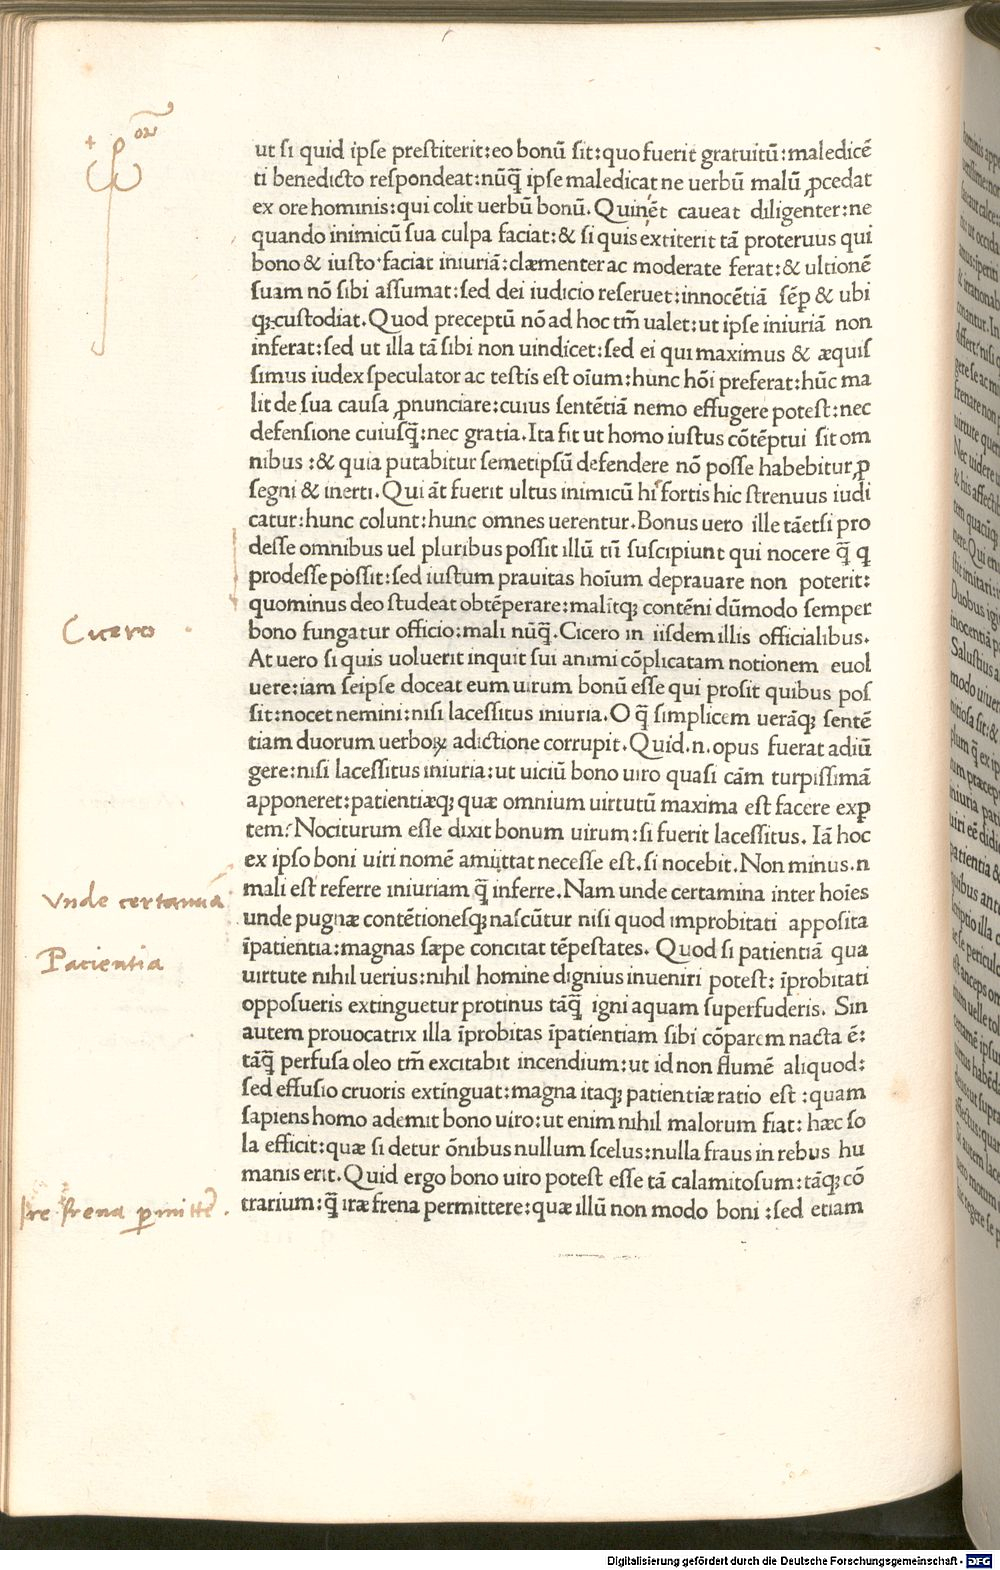 ut si quid ipse prestiterit:eo bonū sit:quo fuerit gratuitū:maledicē
ti benedicto respondeat:nūq̄ ipse maledicat ne uerbū malū ꝓcedat
ex ore hominis:qui colit uerbū bonū. Quinēt caueat diligenter:ne
quando inimicū sua culpa faciat:& si quis extiterit tā proteruus qui
bono & iusto faciat iniuriā:clæmenter ac moderate ferat:& ultionē
suam nō sibi assumat:sed dei iudicio reseruet:innocētiā sēꝑ & ubi
qꝫ custodiat. Quod preceptū nō ad hoc tm̄ ualet:ut ipse iniuriā non
inferat:sed ut illa tā sibi non uindicet:sed ei qui maximus & æquis
simus iudex speculator ac testis est oīum:hunc hōi preferat:hūc ma
lit de sua causa ꝓnunciare:cuius sentētiā nemo effugere potest:nec
defensione cuiusq̄:nec gratia. Ita fit ut homo iustus cōtēptui sit om
nibus :& quia putabitur semetipsū defendere nō posse habebitur ꝓ
segni & inerti. Qui āt fuerit ultus inimicū hi fortis hic strenuus iudi
catur:hunc colunt:hunc omnes uerentur. Bonus uero ille tāetsi pro
desse omnibus uel pluribus possit illū tn̄ suscipiunt qui nocere q̄ q
prodesse possit:sed iustum prauitas hoīum deprauare non poterit:
quominus deo studeat obtēperare:malitqꝫ contēni dūmodo semper
Cicero
bono fungatur officio:mali nūq̄. Cicero in iisdem illis officialibus.
At uero si quis uoluerit inquit sui animi cōplicatam notionem euol
uere:iam seipse doceat eum uirum bonū esse qui prosit quibus pos
sit:nocet nemini:nisi lacessitus iniuria. O q̄ simplicem uerāqꝫ sentē
tiam duorum uerboꝝ adictione corrupit. Quid.n.opus fuerat adiū
gere:nisi lacessitus iniuria:ut uiciū bono uiro quasi cām turpissimā
apponeret:patientiæqꝫ quæ omnium uirtutū maxima est facere exꝑ
tem? Nociturum esse dixit bonum uirum:si fuerit lacessitus. Iā hoc
ex ipso boni uiri nomē amittat necesse est.si nocebit. Non minus.n
Vnde certamina
mali est referre iniuriam q̄ inferre. Nam unde certamina inter hoīes
unde pugnæ contētionesqꝫ nascūtur nisi quod improbitati apposita
Pacientia
īpatientia:magnas sæpe concitat tēpestates. Quod si patientiā qua
uirtute nihil uerius:nihil homine dignius inueniri potest: īprobitati
opposueris extinguetur protinus tāq̄ igni aquam superfuderis. Sin
autem prouocatrix illa īprobitas īpatientiam sibi cōparem nacta ē:
tāq̄ perfusa oleo tm̄ excitabit incendium:ut id non flumē aliquod:
sed effusio cruoris extinguat:magna itaqꝫ patientiæ ratio est :quam
sapiens homo ademit bono uiro:ut enim nihil malorum fiat: hæc so
la efficit:quæ si detur ōnibus nullum scelus:nulla fraus in rebus hu
manis erit. Quid ergo bono uiro potest esse tā calamitosum:tāqꝫ cō
Ire frena ꝑmittē
trarium:q̄ iræ frena permittere:quæ illū non modo boni :sed etiam
Digitalisierung gefördert durch die Deutsche Forschungsgemeinschaft - DFG